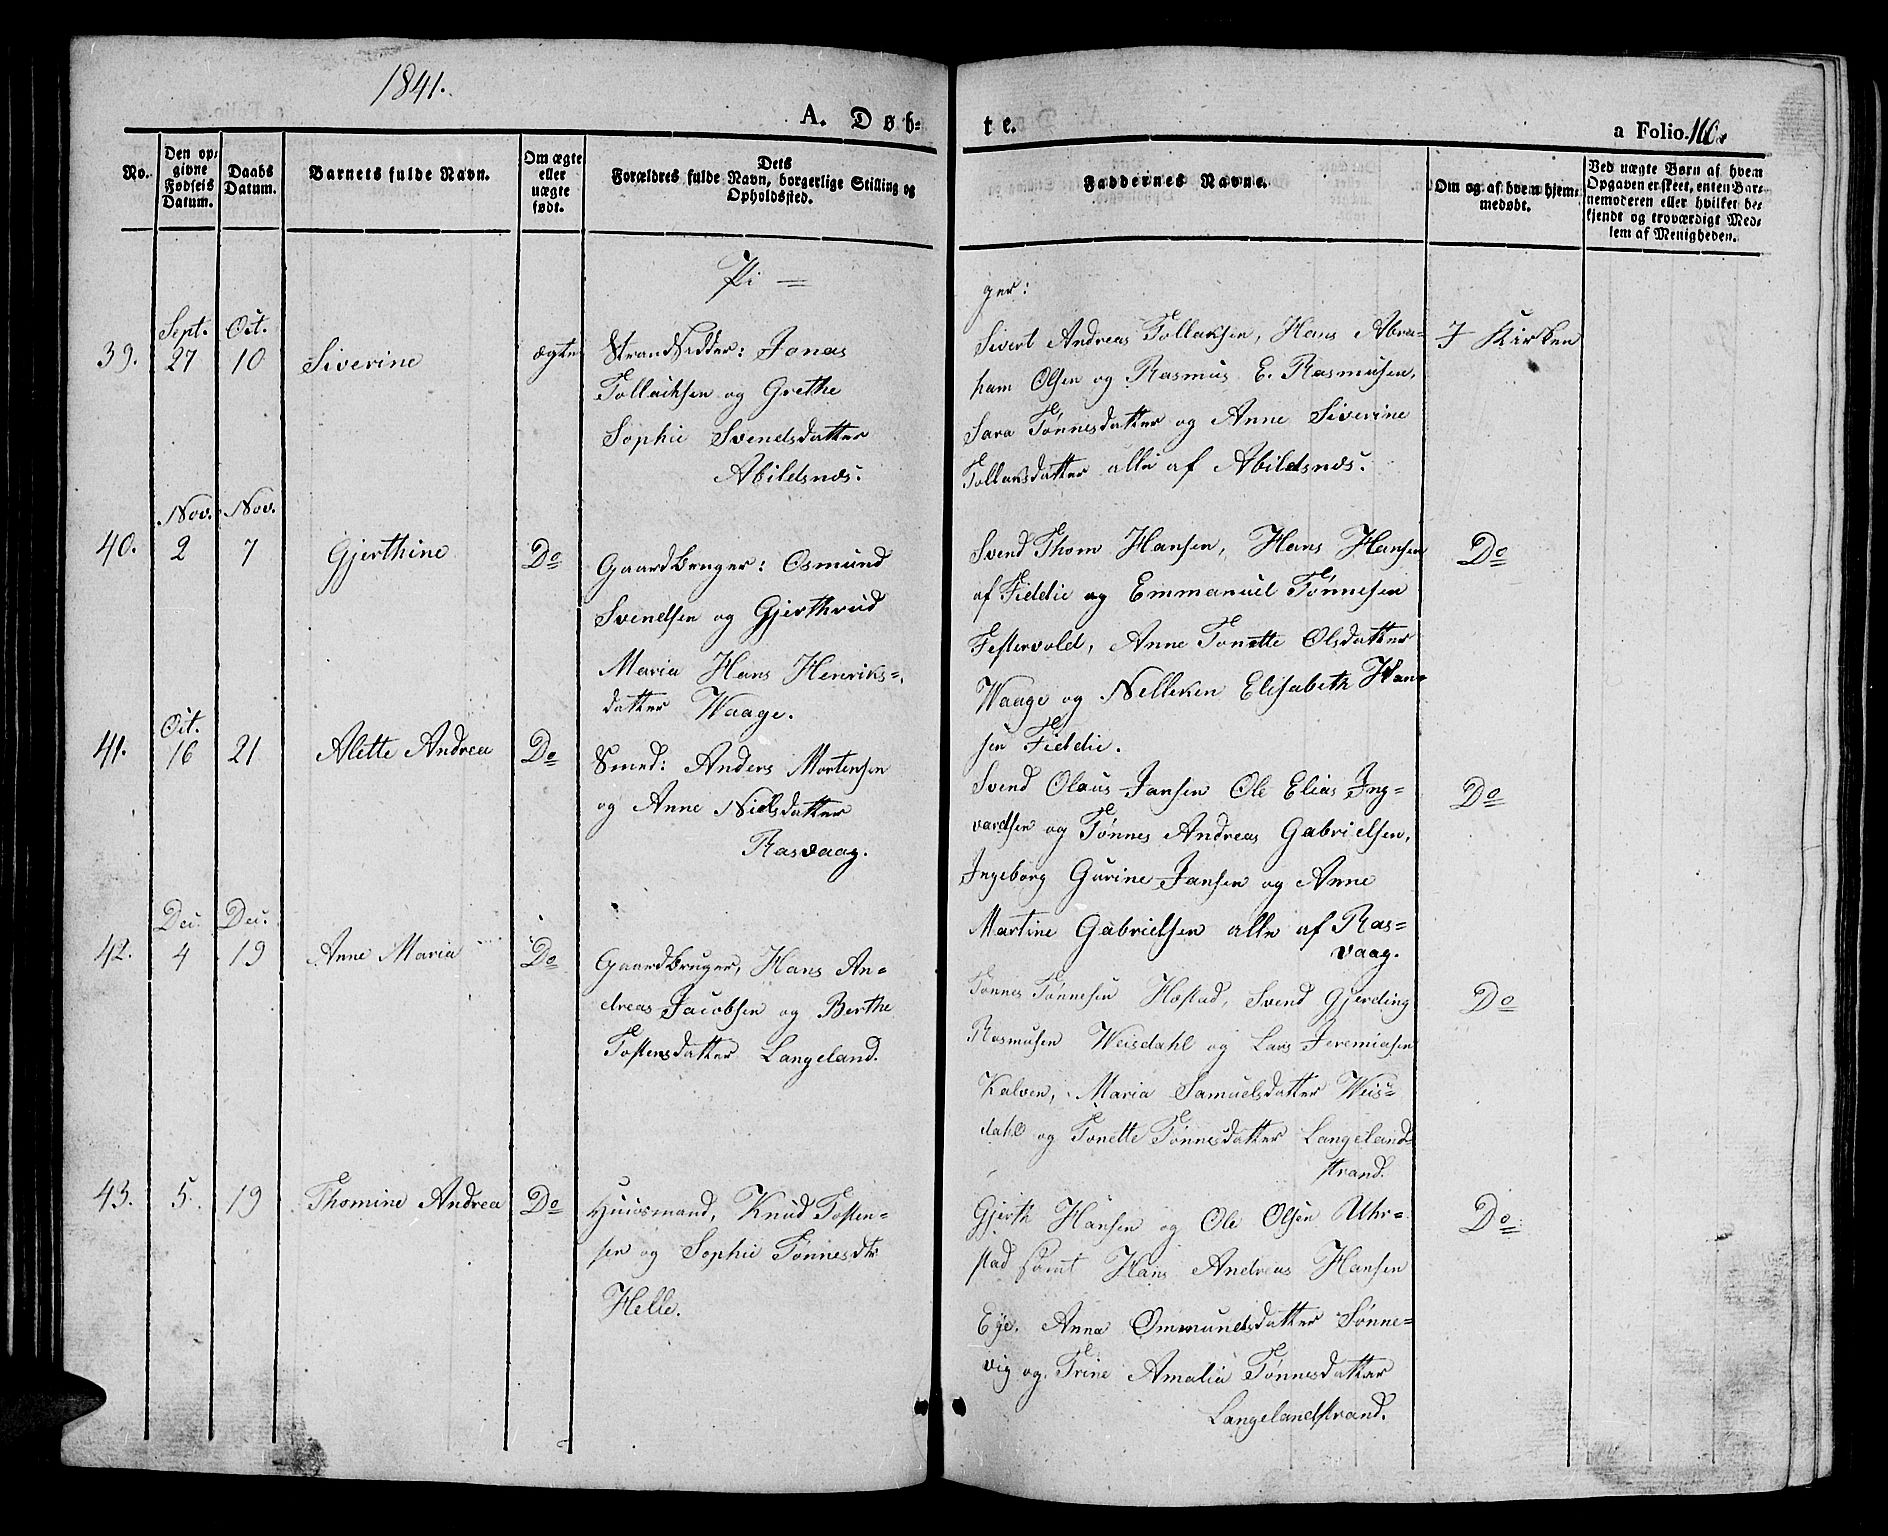 1841.
A. Døb-
te.
a Folio. 110.
No.
Den op-
givne
Fødsels
Datum.
Daabs
Datum.
Barnets fulde Navn.
Om ægte
eller
uægte
født.
Dets
Forældres fulde Navn, borgerlige Stilling og
Opholdssted.
Faddernes Navne.
Om og af hvem hjem-
medøbt.
Ved uægte Børn af hvem
Opgaven er skeet, enten Bar-
nemoderen eller hvilket be-
kjendt og troværdigt Med-
lem af Menigheden.
Pi =
ger:
39.
Sept.
27
Oct.
10
Siverine
ægte
Strandsidder: Jonas
Tollachsen og Grethe
Sophie Svendsdatter
Abildsnæs.
Sivert Andreas Tollaksen, Hans Abra-
ham Olsen og Rasmus E. Rasmusen,
Sara Tønnesdatter og Anne Siverine
Tollaksdatter alle af Abildsnæs.
I Kirken
40.
Nov.
2
Nov.
7
Gjerthine
Do
Gaardbruger: Osmund
Svendsen og Gjerthrud
Maria Hans Henriks-
datter Waage.
Svend Thom Hansen, Hans Hansen
af Fieldie og Emmanuel Tønnesen
Festervold, Anne Tonette Olsdatter
Waage og Nelleken Elisabeth Han-
sen Fieldie.
Do
41.
Oct.
16
21
Alette Andrea
Do
Smed: Anders Mortensen
og Anne Nielsdatter
Rasvaag.
Svend Olaus Jansen Ole Elias Ing-
vardsen og Tønnes Andreas Gabrielsen,
Ingeborg Gurine Jansen og Anne
Martine Gabrielsen alle af Ras-
vaag.
Do
42.
Dec.
4
Dec.
19
Anne Maria
Do
Gaardbruger, Hans An-
dreas Jacobsen og Berthe
Tostensdatter Langeland.
Tønnes Tønnesen Høstad, Svend Gjerding
Rasmusen Weisdahl og Lars Jeremiasen
Kalven, Maria Samuelsdatter Weis-
dahl og Tonette Tønnesdatter Langeland
strand.
Do
43.
5.
19
Thomine Andrea
Do
Huusmand, Knud Tosten-
sen og Sophie Tønnesdtr
Helle.
Gjerth Hansen og Ole Olsen Uhr-
stad samt Hans Andreas Hansen
Eye. Anna Ommundsdatter Sønne-
vig og Trine Amalia Tønnesdatter
Langelandstrand.
Do